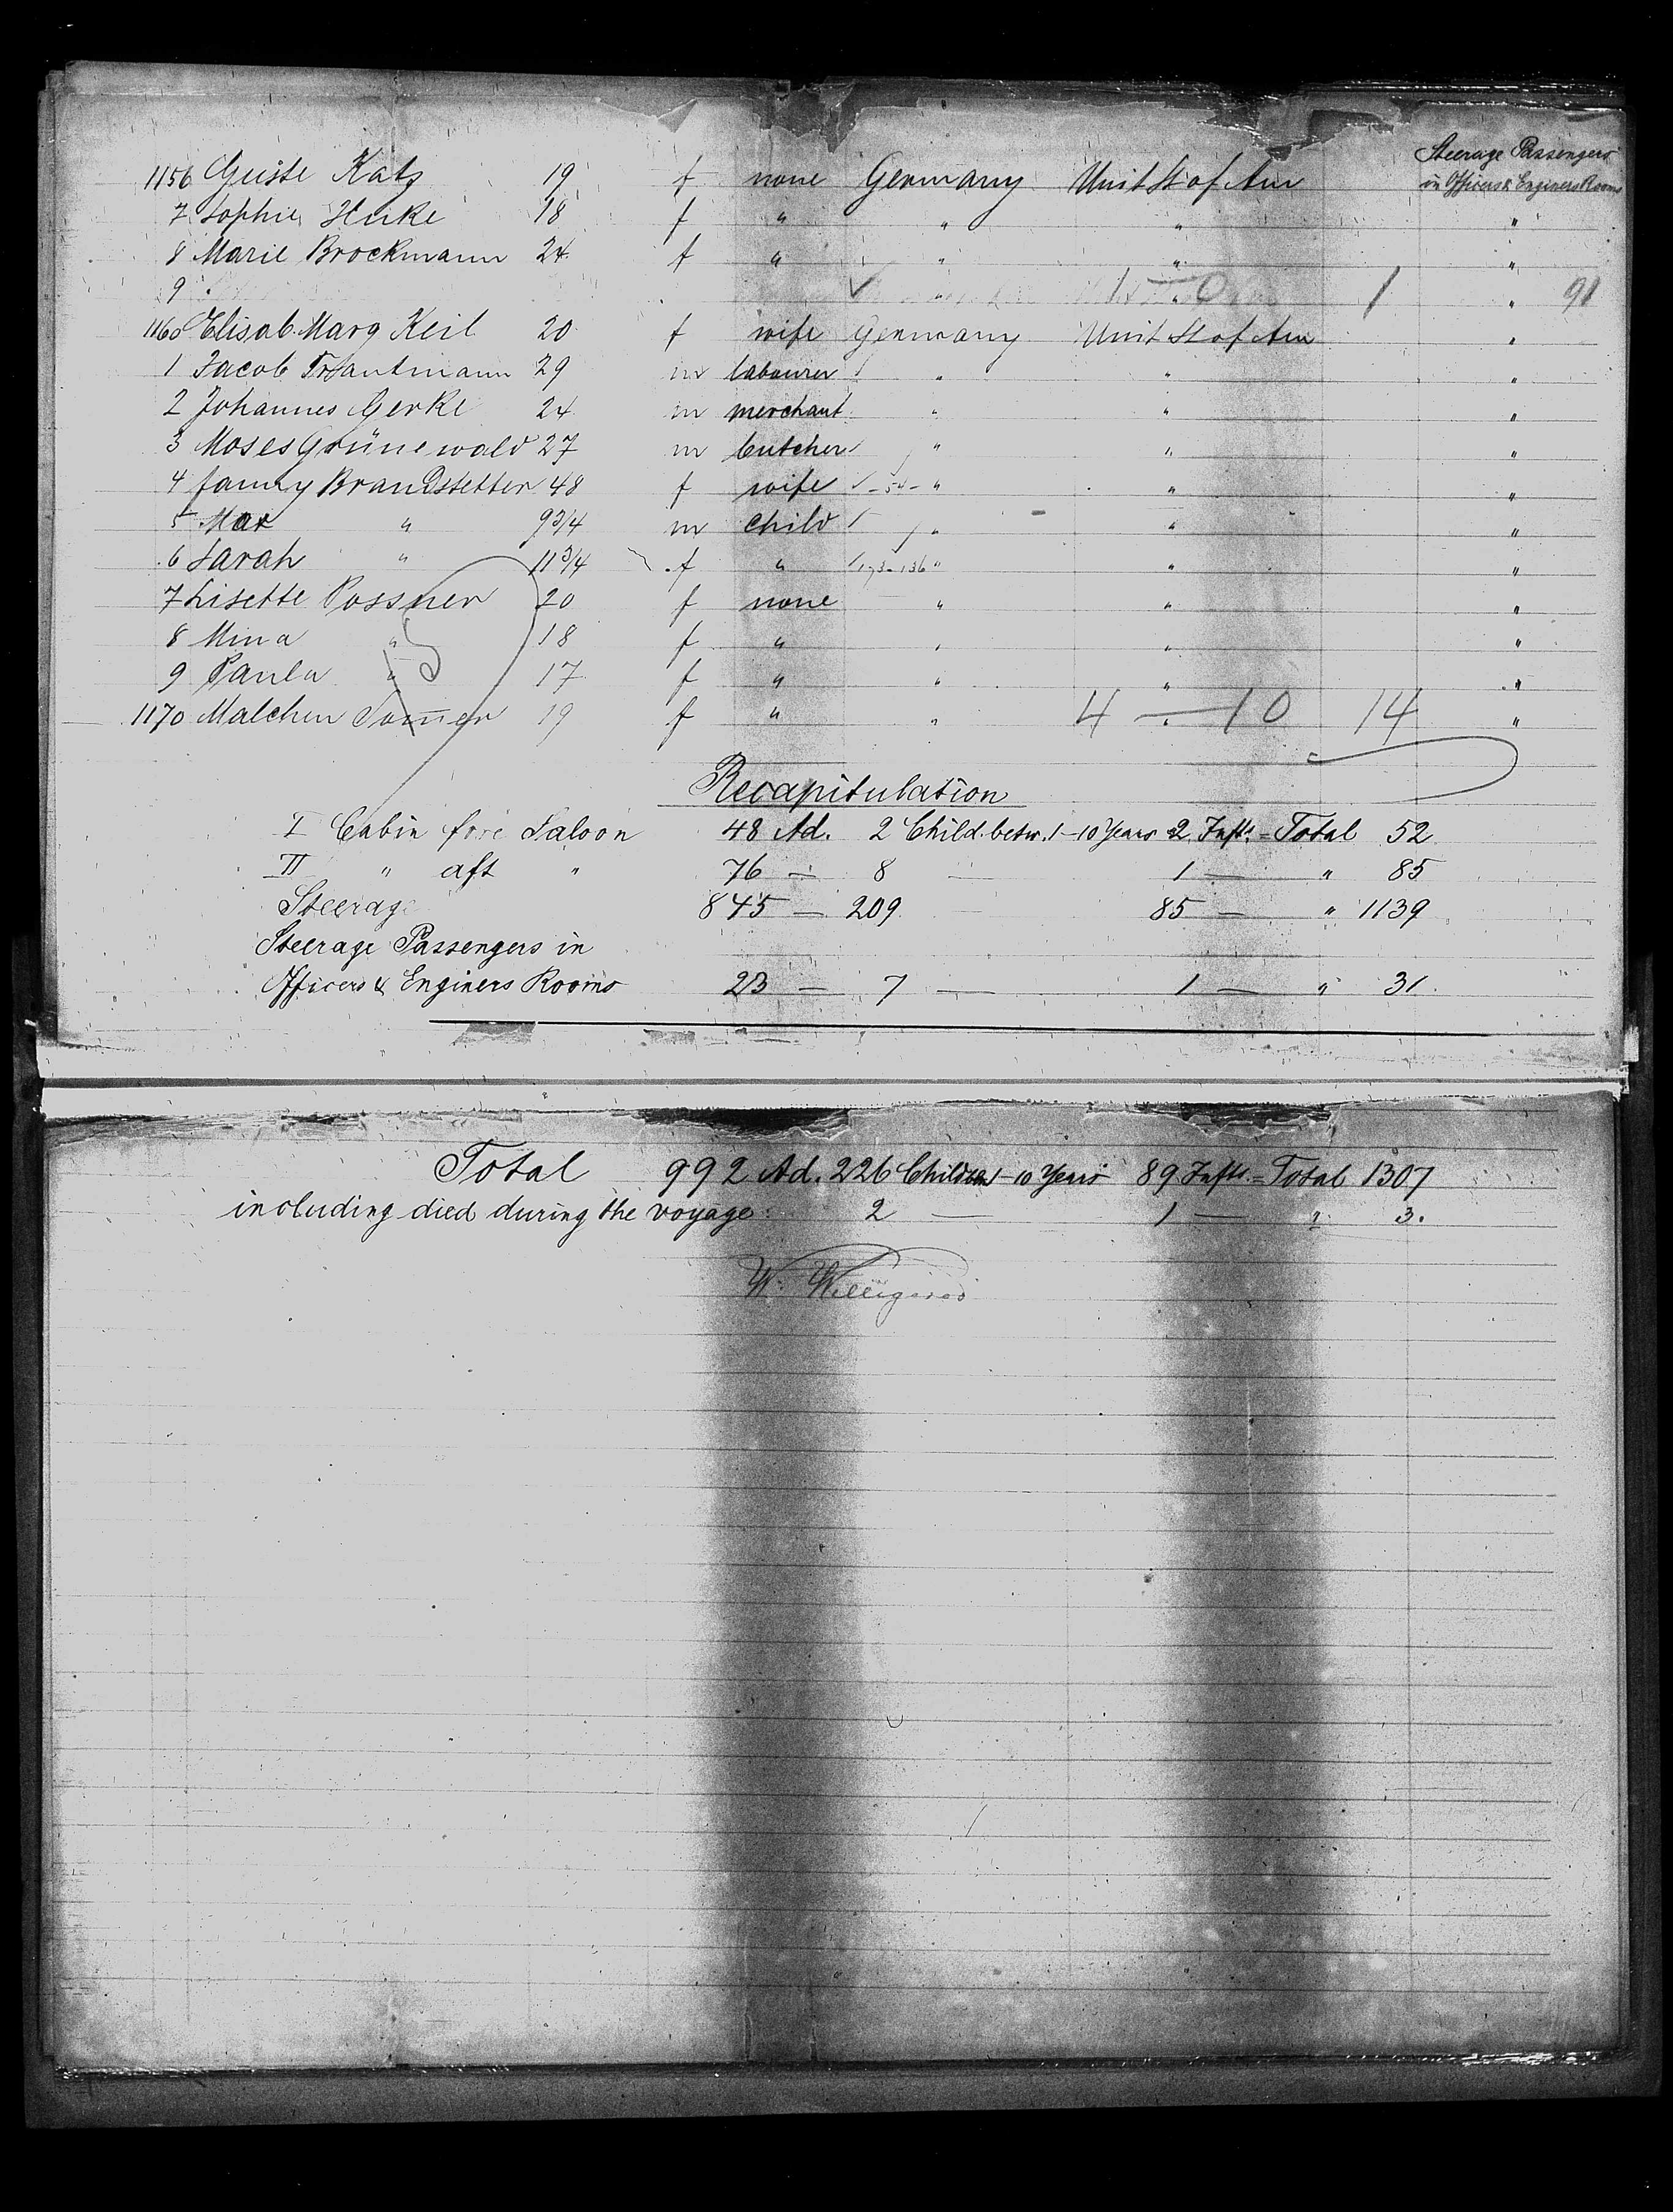 Steerage Passengers
in Officers & Enginers Rooms
1156 Guste Katz 19 f none Germany Unit St of Am
7 Sophie Huke 18 f " " " "
8 Marie Brockmann 24 f " " " "
9 " 1 — 0 1 " 91
1160 Elisab. Marg Keil 20 f wife Germany Unit St of Am "
1 Jacob Trautmann 29 m labourer " " "
2 Johannes Gerke 24 m merchant " " "
3 Moses Grünewald 27 m butcher " " "
4 fanny Brandstetter 48 f wife - 54 - " " "
5 Max " 9 3/4 m child " " "
6 Sarah " 11 3/4 f " " " "
7 Lisette Possner 20 f none " " "
8 Mina " 18 f " " " "
9 Paula " 17 f " " " "
1170 Malchen Som̅er 19 f " " 4 — " 10 14 "
Recapitulation
I Cabin fore Saloon 48 Ad. 2 Child. betw. 1-10 Years 2 Infts. = Total 52
II " aft " 76 — 8 — 1 — " 85
Steerage 845 — 209 — 85 — " 1139
Steerage Passengers in
Officers & Enginers Rooms 23 — 7 — 1 — " 31.
Total 992 Ad. 226 Children 1-10 Years 89 Infts. = Total 1307
including died during the voyage: 2 — 1 — " 3.
W. Willigerod